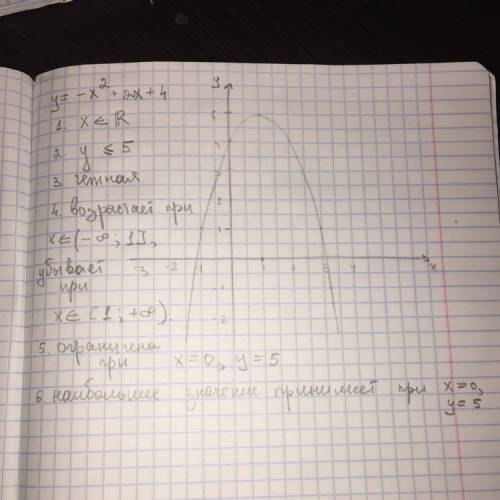 y = -x² + 2x + 4
1. x ∈ ℝ
2. y ≤ 5
3. четная
4. возрастает при
x ∈ (-∞; 1],
убывает
при
x ∈ [1; +∞).
5. ограничена
при x=0, y=5
6. наибольшее значение принимает при x=0,
y=5
y
5
3
1
-3 -2 -1 1 2 3 4 x
-1
-2